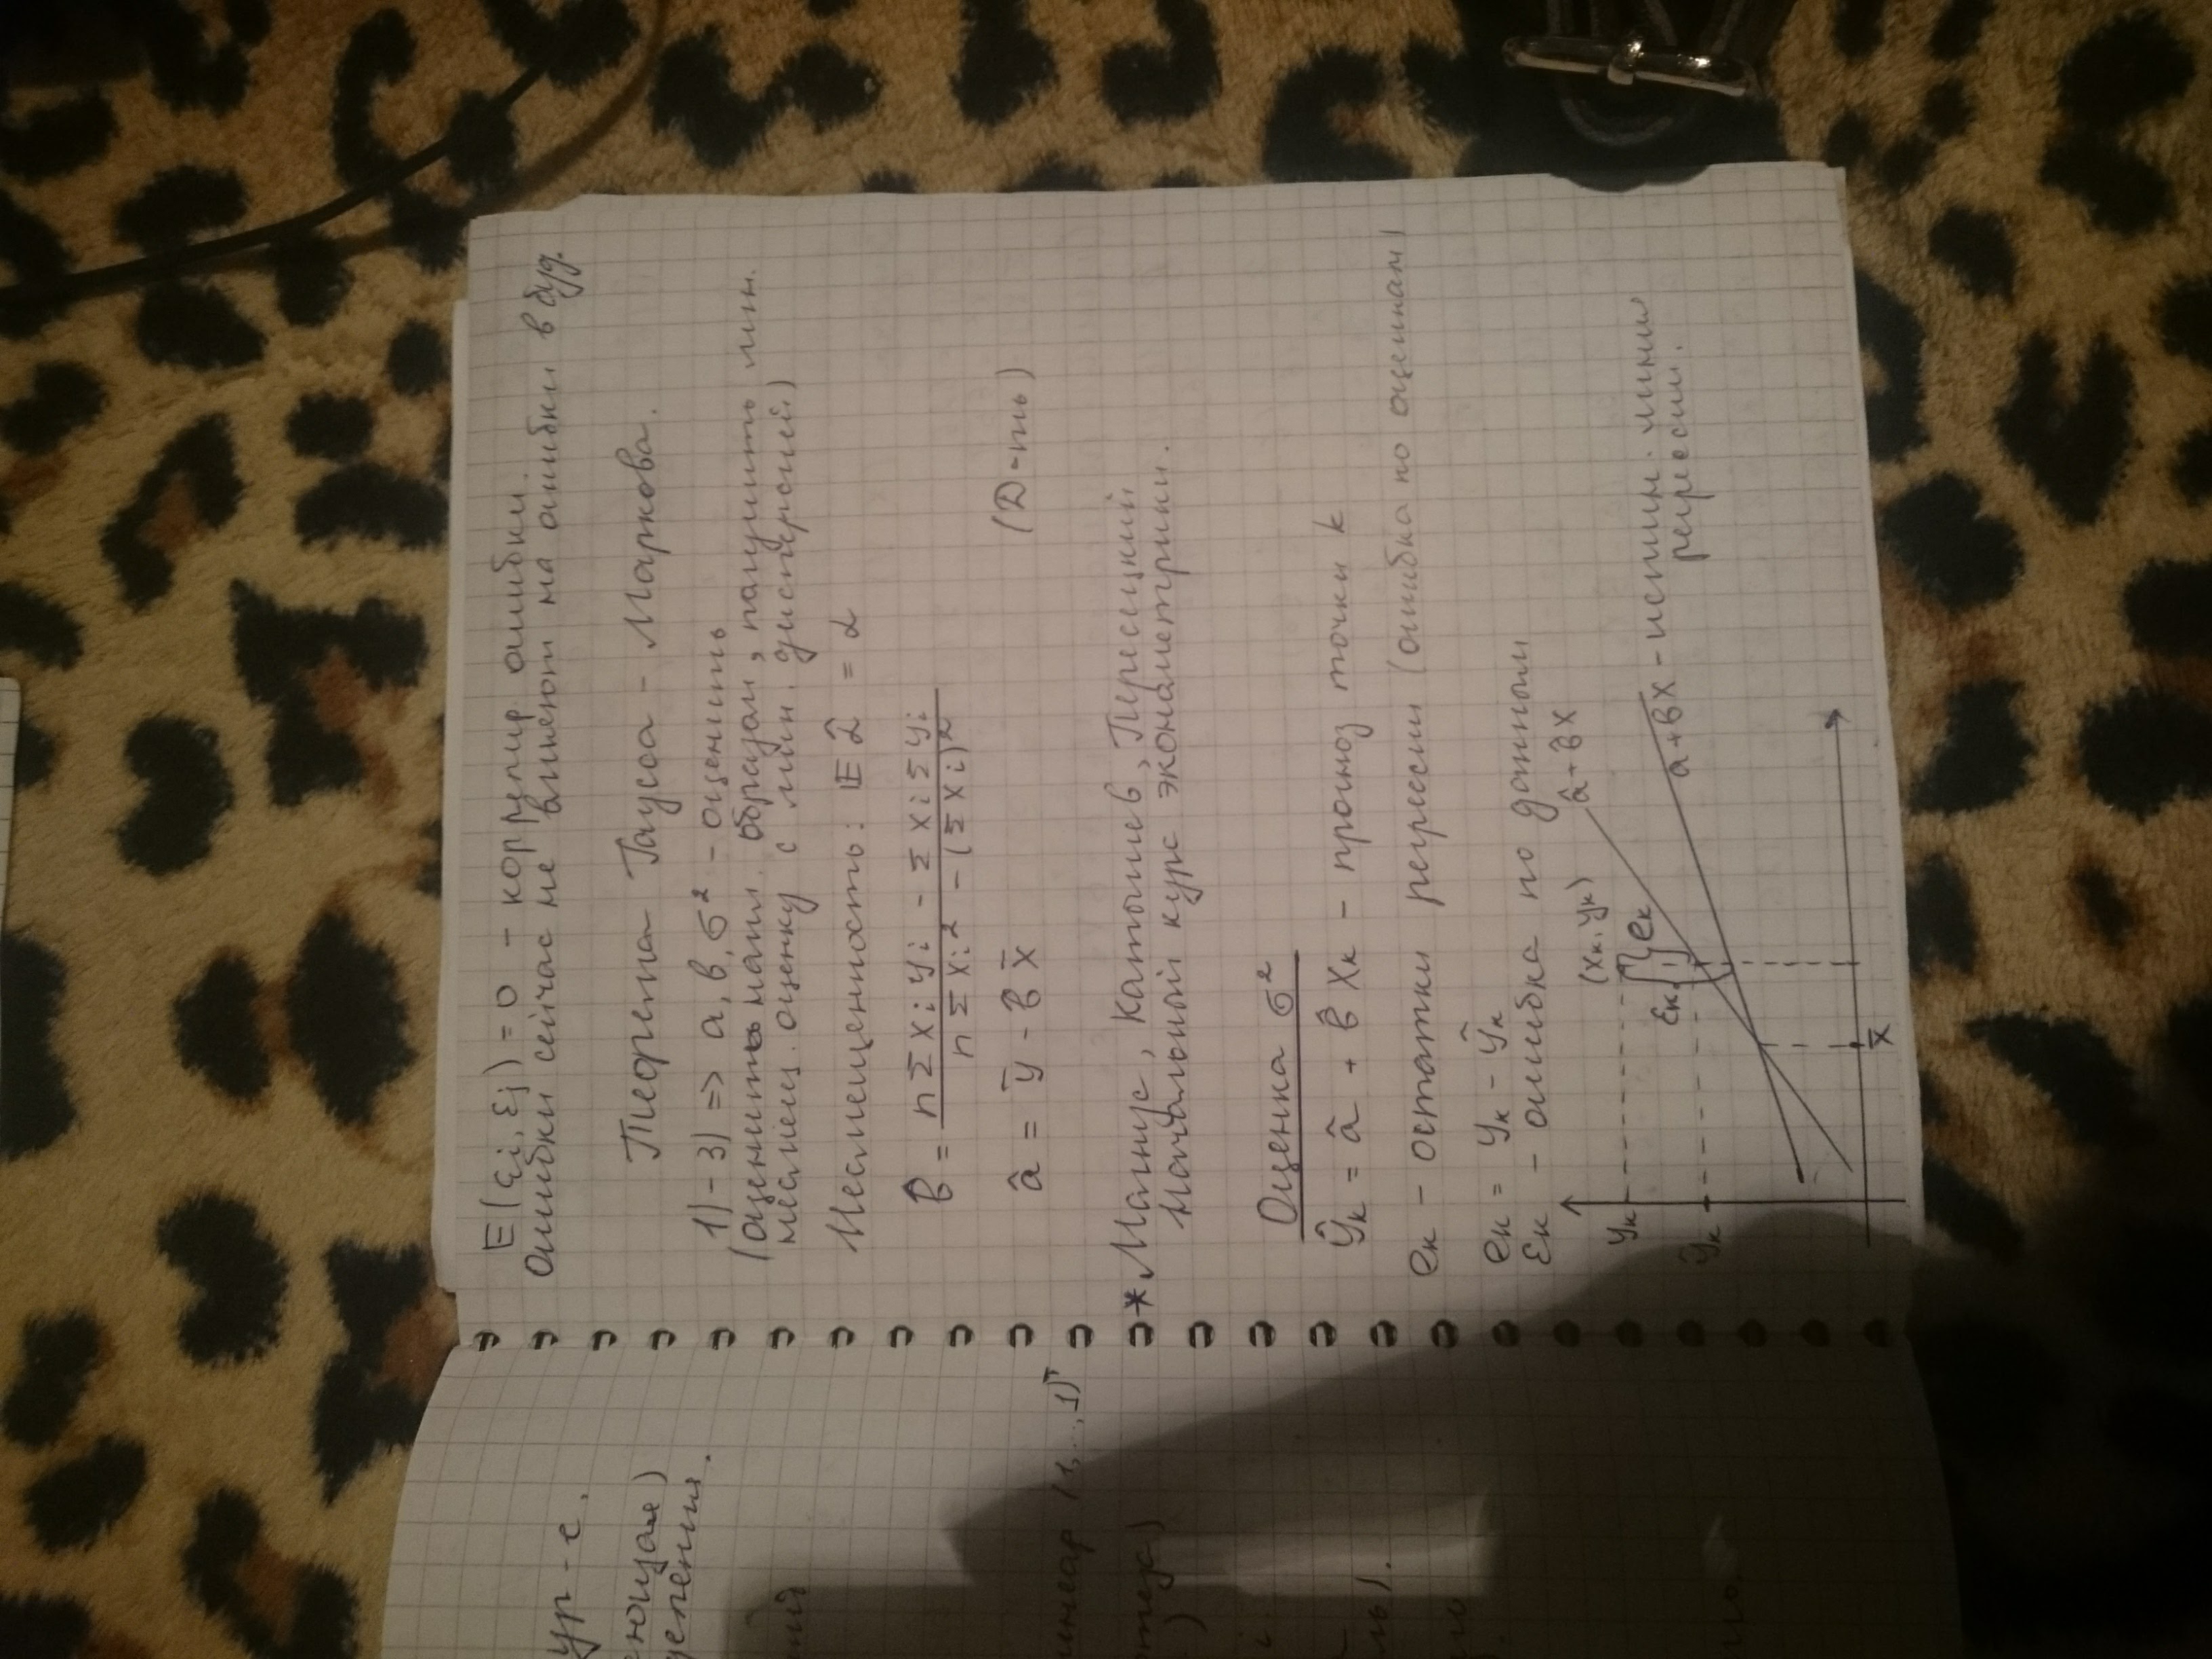 E(εi, εj) = 0 - коррелир ошибки.
Ошибки сейчас не влияют на ошибки в буд.
Теорема Гаусса - Маркова.
1) - 3) => a, b, σ² - оценить
(оценить наил. образом, получить лин.
несмещ. оценку с мин. дисперсией)
Несмещенность: E α̂ = α
b̂ = (n Σ xi yi - Σ xi Σ yi) / (n Σ xi² - (Σ xi)²)
â = ȳ - b̂ x̄ (D-ть)
* Магнус, Катышев, Пересецкий
Начальный курс эконометрики.
Оценка σ²
ŷk = â + b̂ xk - прогноз точки k
ek - остатки регрессии (ошибка по оценкам)
ek = yk - ŷk
εk - ошибка по данным
(xk, yk) â + b̂x
yk εk ek
a + bx - истин. линия
регрессии.
ŷk
x̄
ур - е.
ующая)
1, ..., 1)ᵀ